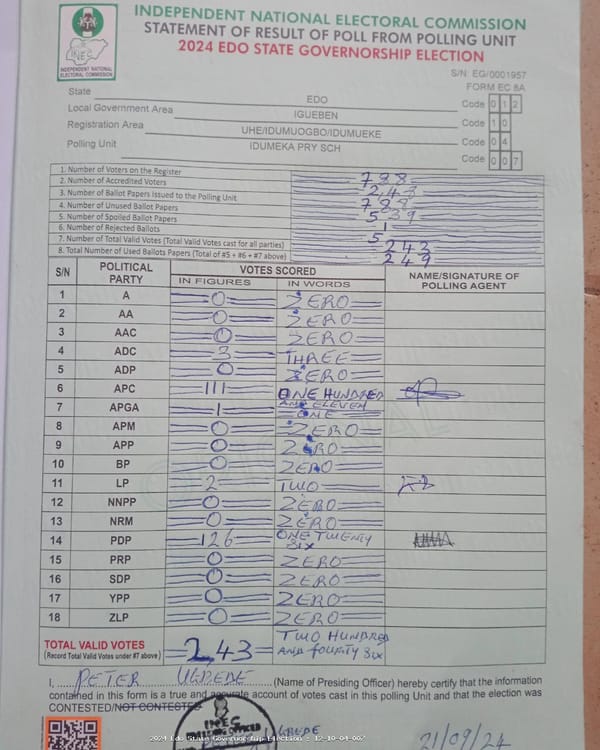 INDEPENDENT NATIONAL ELECTORAL COMMISSION
STATEMENT OF RESULT OF POLL FROM POLLING UNIT
2024 EDO STATE GOVERNORSHIP ELECTION
INEC
INDEPENDENT NATIONAL
ELECTORAL COMMISSION
S/N: EG/0001957
FORM EC 8A
State EDO Code 012
Local Government Area IGUEBEN Code 10
Registration Area UHE/IDUMUOGBO/IDUMUEKE Code 04
Polling Unit IDUMEKA PRY SCH Code 007
1. Number of Voters on the Register 788
2. Number of Accredited Voters 243
3. Number of Ballot Papers Issued to the Polling Unit 788
4. Number of Unused Ballot Papers 539
5. Number of Spoiled Ballot Papers 1
6. Number of Rejected Ballots 5
7. Number of Total Valid Votes (Total Valid Votes cast for all parties) 243
8. Total Number of Used Ballots Papers (Total of #5 + #6 + #7 above) 249
S/N POLITICAL PARTY VOTES SCORED NAME/SIGNATURE OF POLLING AGENT
IN FIGURES IN WORDS
1 A 0 ZERO
2 AA 0 ZERO
3 AAC 0 ZERO
4 ADC 3 THREE
5 ADP 0 ZERO
6 APC 111 ONE HUNDRED AND ELEVEN
7 APGA 1 ONE
8 APM 0 ZERO
9 APP 0 ZERO
10 BP 0 ZERO
11 LP 2 TWO
12 NNPP 0 ZERO
13 NRM 0 ZERO
14 PDP 126 ONE TWENTY SIX
15 PRP 0 ZERO
16 SDP 0 ZERO
17 YPP 0 ZERO
18 ZLP 0 ZERO
TOTAL VALID VOTES 243 TWO HUNDRED
(Record Total Valid Votes under #7 above) AND FOURTY SIX
I, PETER (Name of Presiding Officer) hereby certify that the information
contained in this form is a true and accurate account of votes cast in this polling Unit and that the election was
CONTESTED/NOT CONTESTED
INEC
21/09/24
2024 Edo State Governorship Election : 12-10-04-007